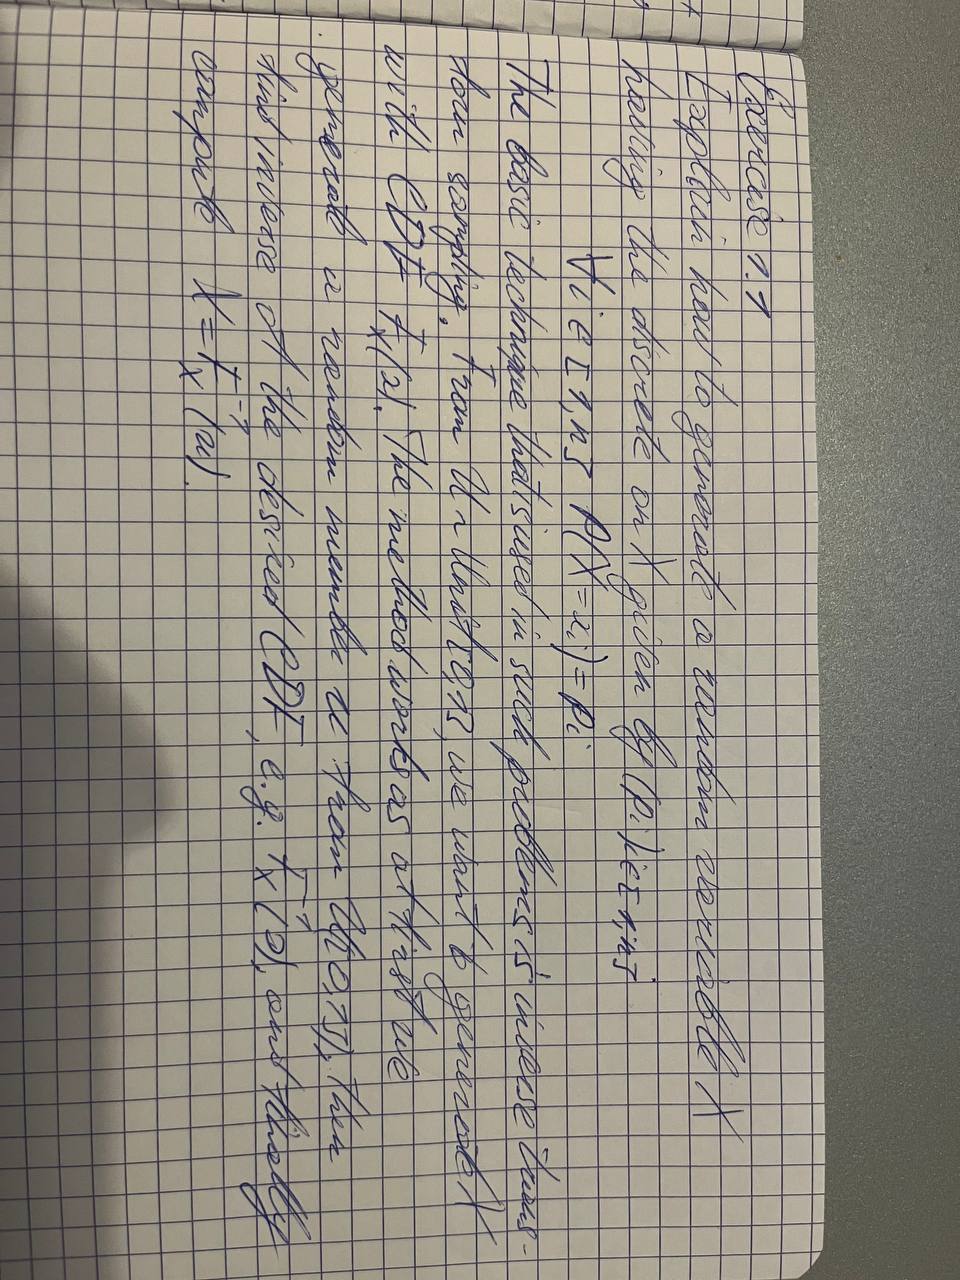 Exercise 1.1
Explain how to generate a random variable X
having the discrete on X given by (pi)i∈[1,n]
∀i ∈ [1,n] P(X=xi)=pi
The basic technique that is used in such problems is inverse trans-
form sampling. From U ~ Unif[0,1], we want to generate X
with CDF Fx(x). The method works as at first we
generate a random number u from U([0,1]), then
find inverse of the desired CDF, e.g. Fx⁻¹(x), and finally
compute X = Fx⁻¹(u).